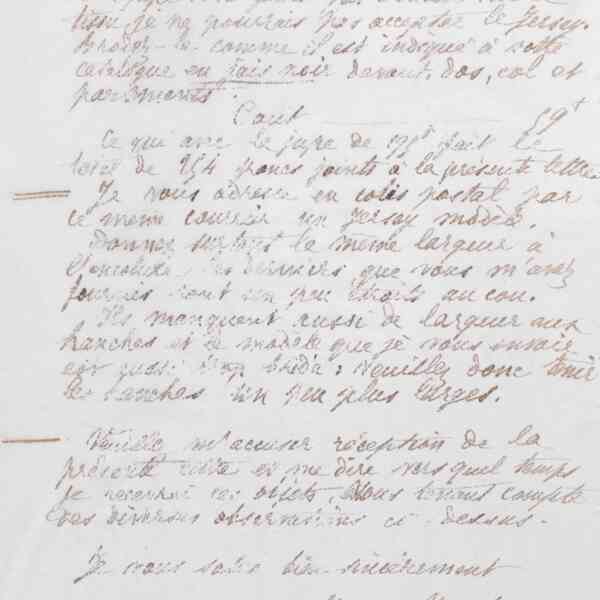 tissu je ne pourrais pas accepter le Jersey.
Brodez-le comme il est indiqué à votre
catalogue en jais noir devant, dos, col et
parements.
Cout 59 f
Ce qui avec la jupe de 195 f fait le
total de 254 francs joints à la présente lettre
Je vous adresse en colis postal par
ce même courrier un Jersey modèle.
Donnez surtout la même largeur à
l'encolure, les derniers que vous m'avez
fournis sont un peu étroits au cou.
Ils manquent aussi de largeur aux
hanches et le modèle que je vous envoie
est aussi trop bridé : veuillez donc tenir
les hanches un peu plus larges.
Veuillez m'accuser réception de la
présente lettre et me dire vers quel temps
je recevrai ces objets, vous tenant compte
des diverses observations ci-dessus.
Je vous salue bien sincèrement